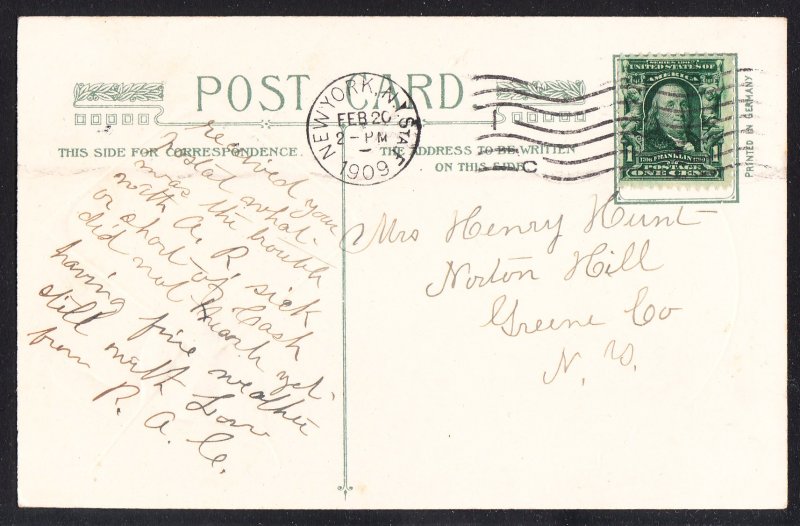 POST CARD
THIS SIDE FOR CORRESPONDENCE.
THE ADDRESS TO BE WRITTEN
ON THIS SIDE
NEW YORK, N.Y. STA.
FEB 20
2 - PM
1909
C
SERIES 1902
UNITED STATES OF
AMERICA
1 1706 FRANKLIN 1790 1
POSTAGE
ONE CENT
PRINTED IN GERMANY
received your
Postal what
was the trouble
with A. R, sick
or short of Cash
did not hear yet.
having fine weather
still with Low
from R. A. C.
Mrs Henry Hunt
Norton Hill
Greene Co
N. Y.